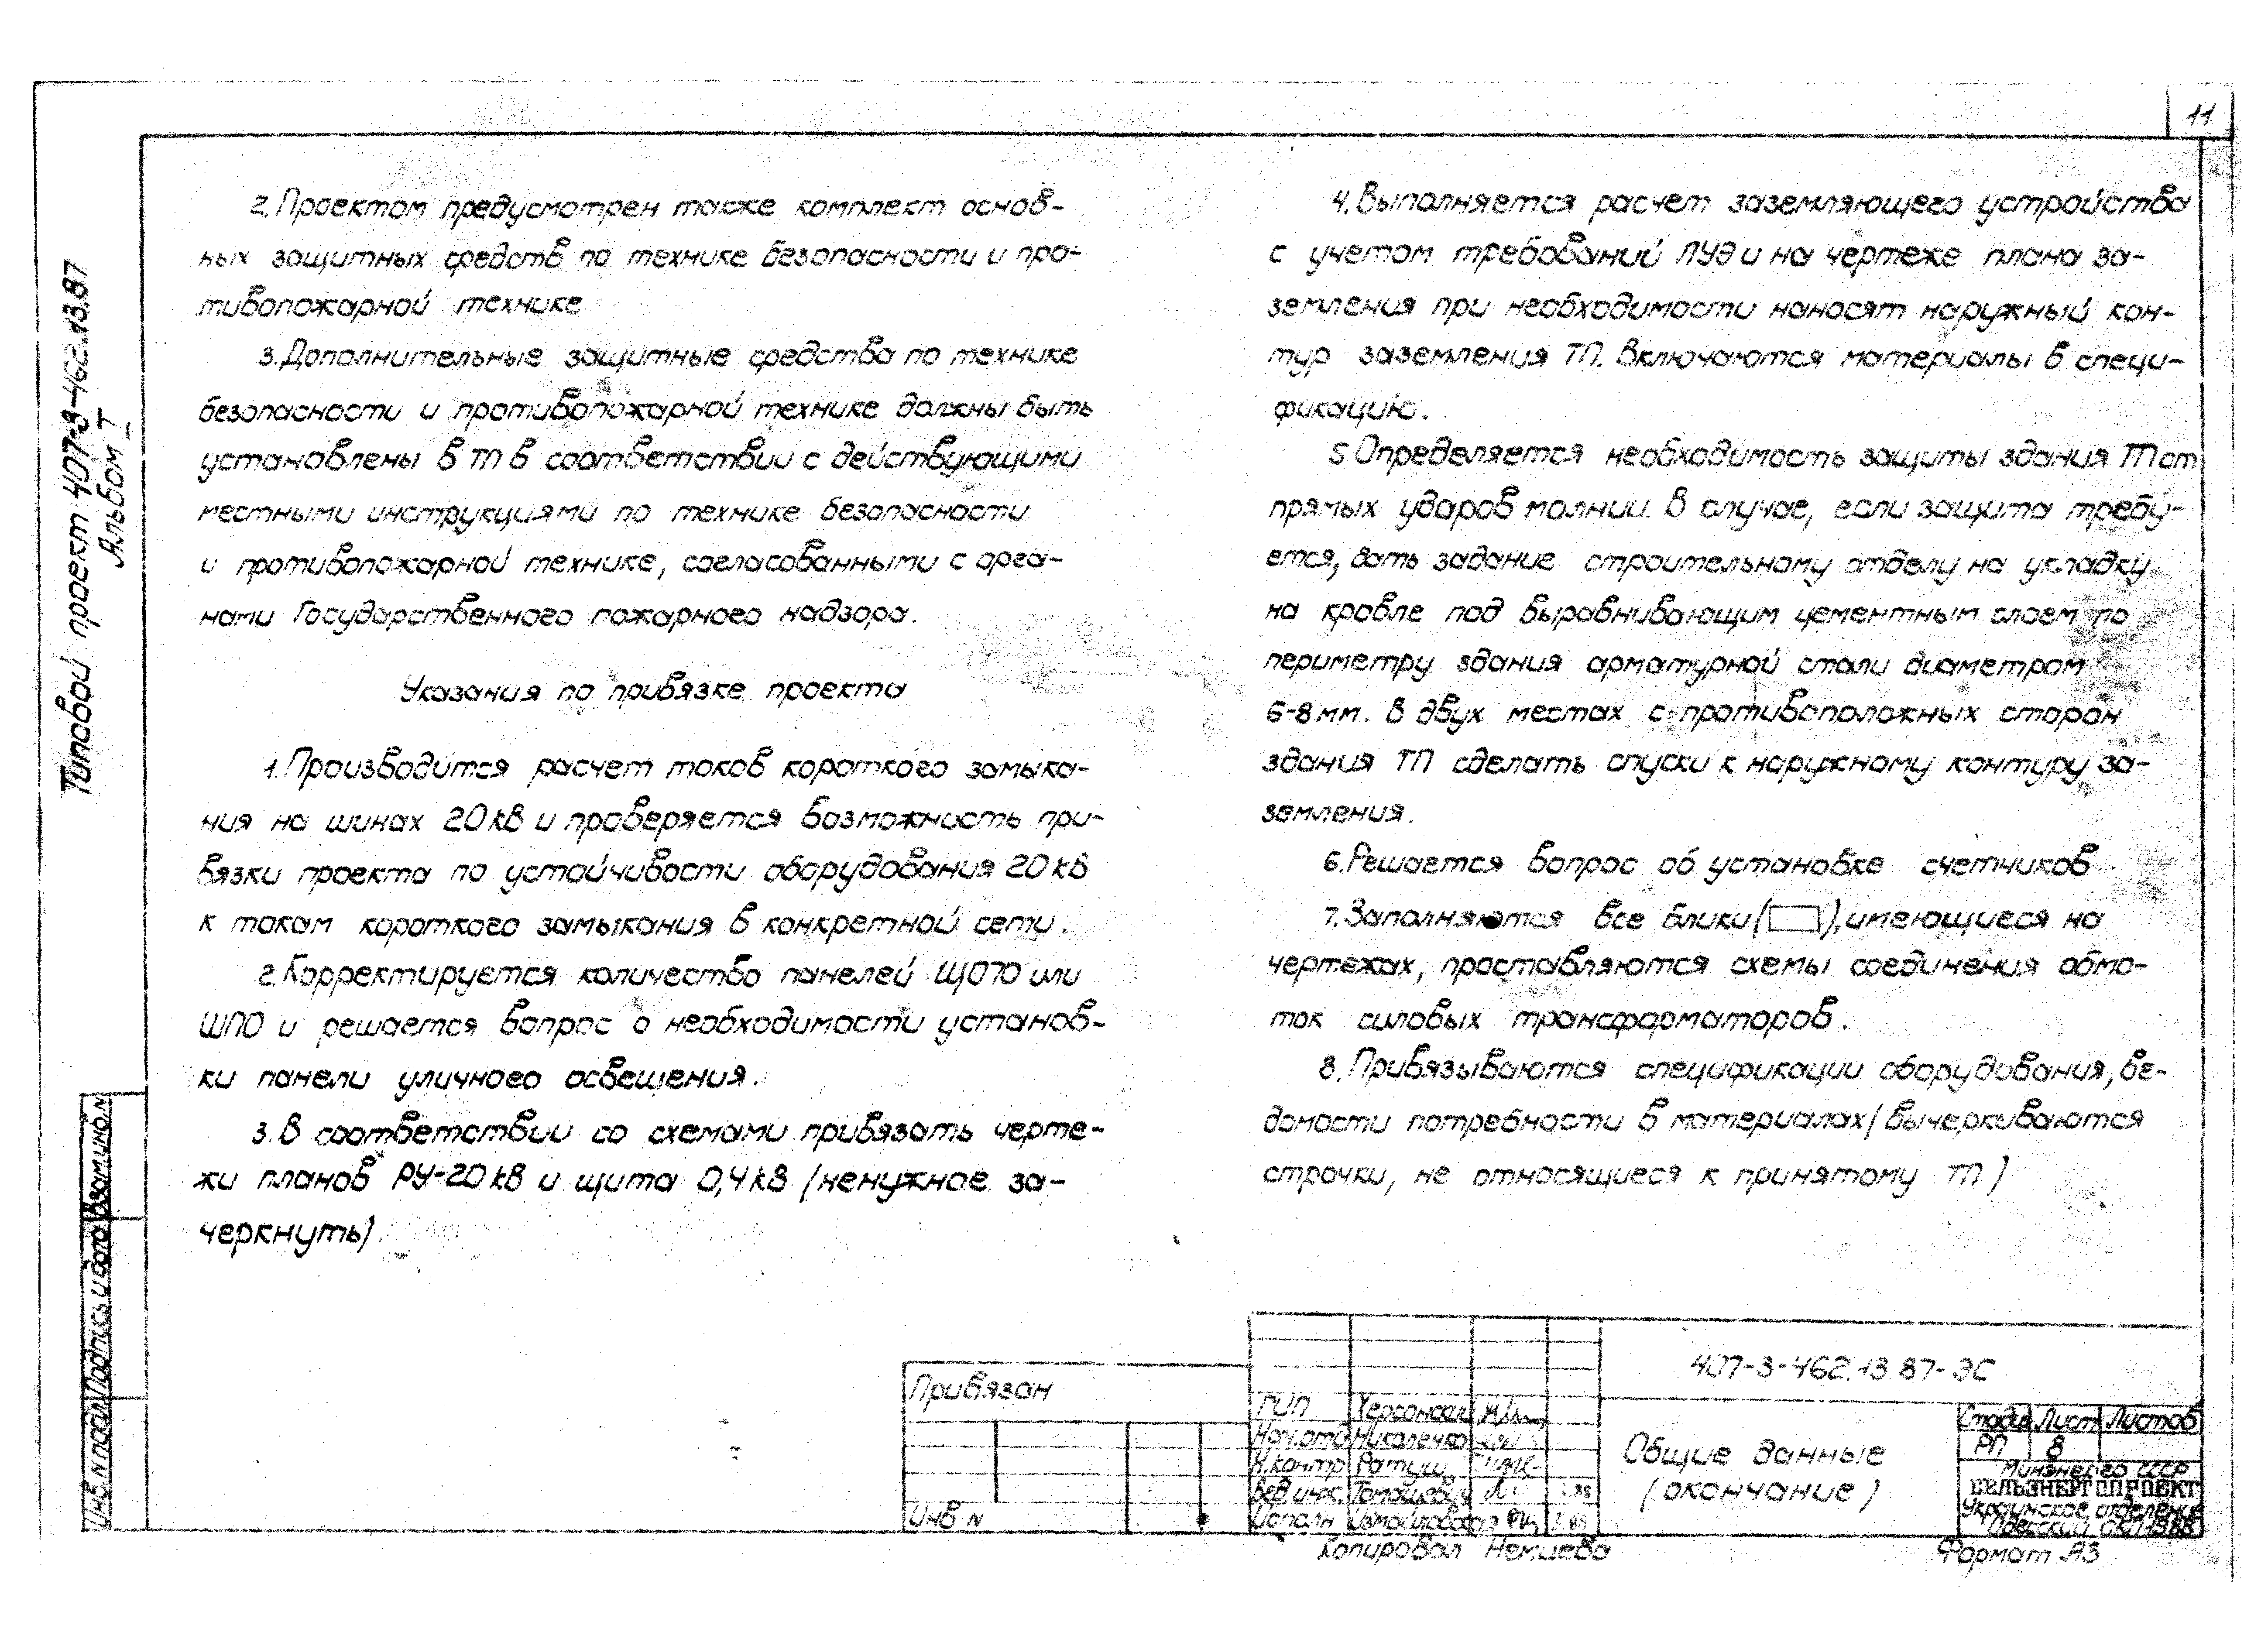 11
Типовой проект 407-3-462.13.87
Альбом I
2. Проектом предусмотрен также комплект основ-
ных защитных средств по технике безопасности и про-
тивопожарной технике
3. Дополнительные защитные средства по технике
безопасности и противопожарной технике должны быть
установлены в ТП в соответствии с действующими
местными инструкциями по технике безопасности
и противопожарной технике, согласованными с орга-
нами Государственного пожарного надзора.
Указания по привязке проекта
1. Производится расчет токов короткого замыка-
ния на шинах 20 кВ и проверяется возможность при-
вязки проекта по устойчивости оборудования 20 кВ
к токам короткого замыкания в конкретной сети.
2. Корректируется количество панелей ЩО70 или
ШПО и решается вопрос о необходимости установ-
ки панели уличного освещения.
3. В соответствии со схемами привязать черте-
жи планов РУ-20 кВ и щита 0,4 кВ (ненужное за-
черкнуть).
4. Выполняется расчет заземляющего устройства
с учетом требований ПУЭ и на чертеже плана за-
земления при необходимости наносят наружный кон-
тур заземления ТП. Включаются материалы в специ-
фикацию.
5. Определяется необходимость защиты здания ТП от
прямых ударов молнии. В случае, если защита требу-
ется, дать задание строительному отделу на укладку
на кровле под выравнивающим цементным слоем по
периметру здания арматурной стали диаметром
6-8 мм. В двух местах с противоположных сторон
здания ТП сделать спуски к наружному контуру за-
земления.
6. Решается вопрос об установке счетчиков
7. Заполняются все блики ( ), имеющиеся на
чертежах, проставляются схемы соединения обмо-
ток силовых трансформаторов.
8. Привязываются спецификации оборудования, ве-
домости потребности в материалах (вычеркиваются
строчки, не относящиеся к принятому ТП)
Взам инв. N
Подпись и дата
Инв. N подл
Привязан
Инв N
ГИП Херсонский
Нач. отд Николенко
Н. контр Ратуш
Вед инж.
Исполн Измайловская
407-3-462.13.87-ЭС
Общие данные
(окончание)
Стадия Лист Листов
РП 8
Минэнерго СССР
СЕЛЬЭНЕРГОПРОЕКТ
Украинское отделение
Одесский ОКП 1988
Копировал Немцева
Формат А3